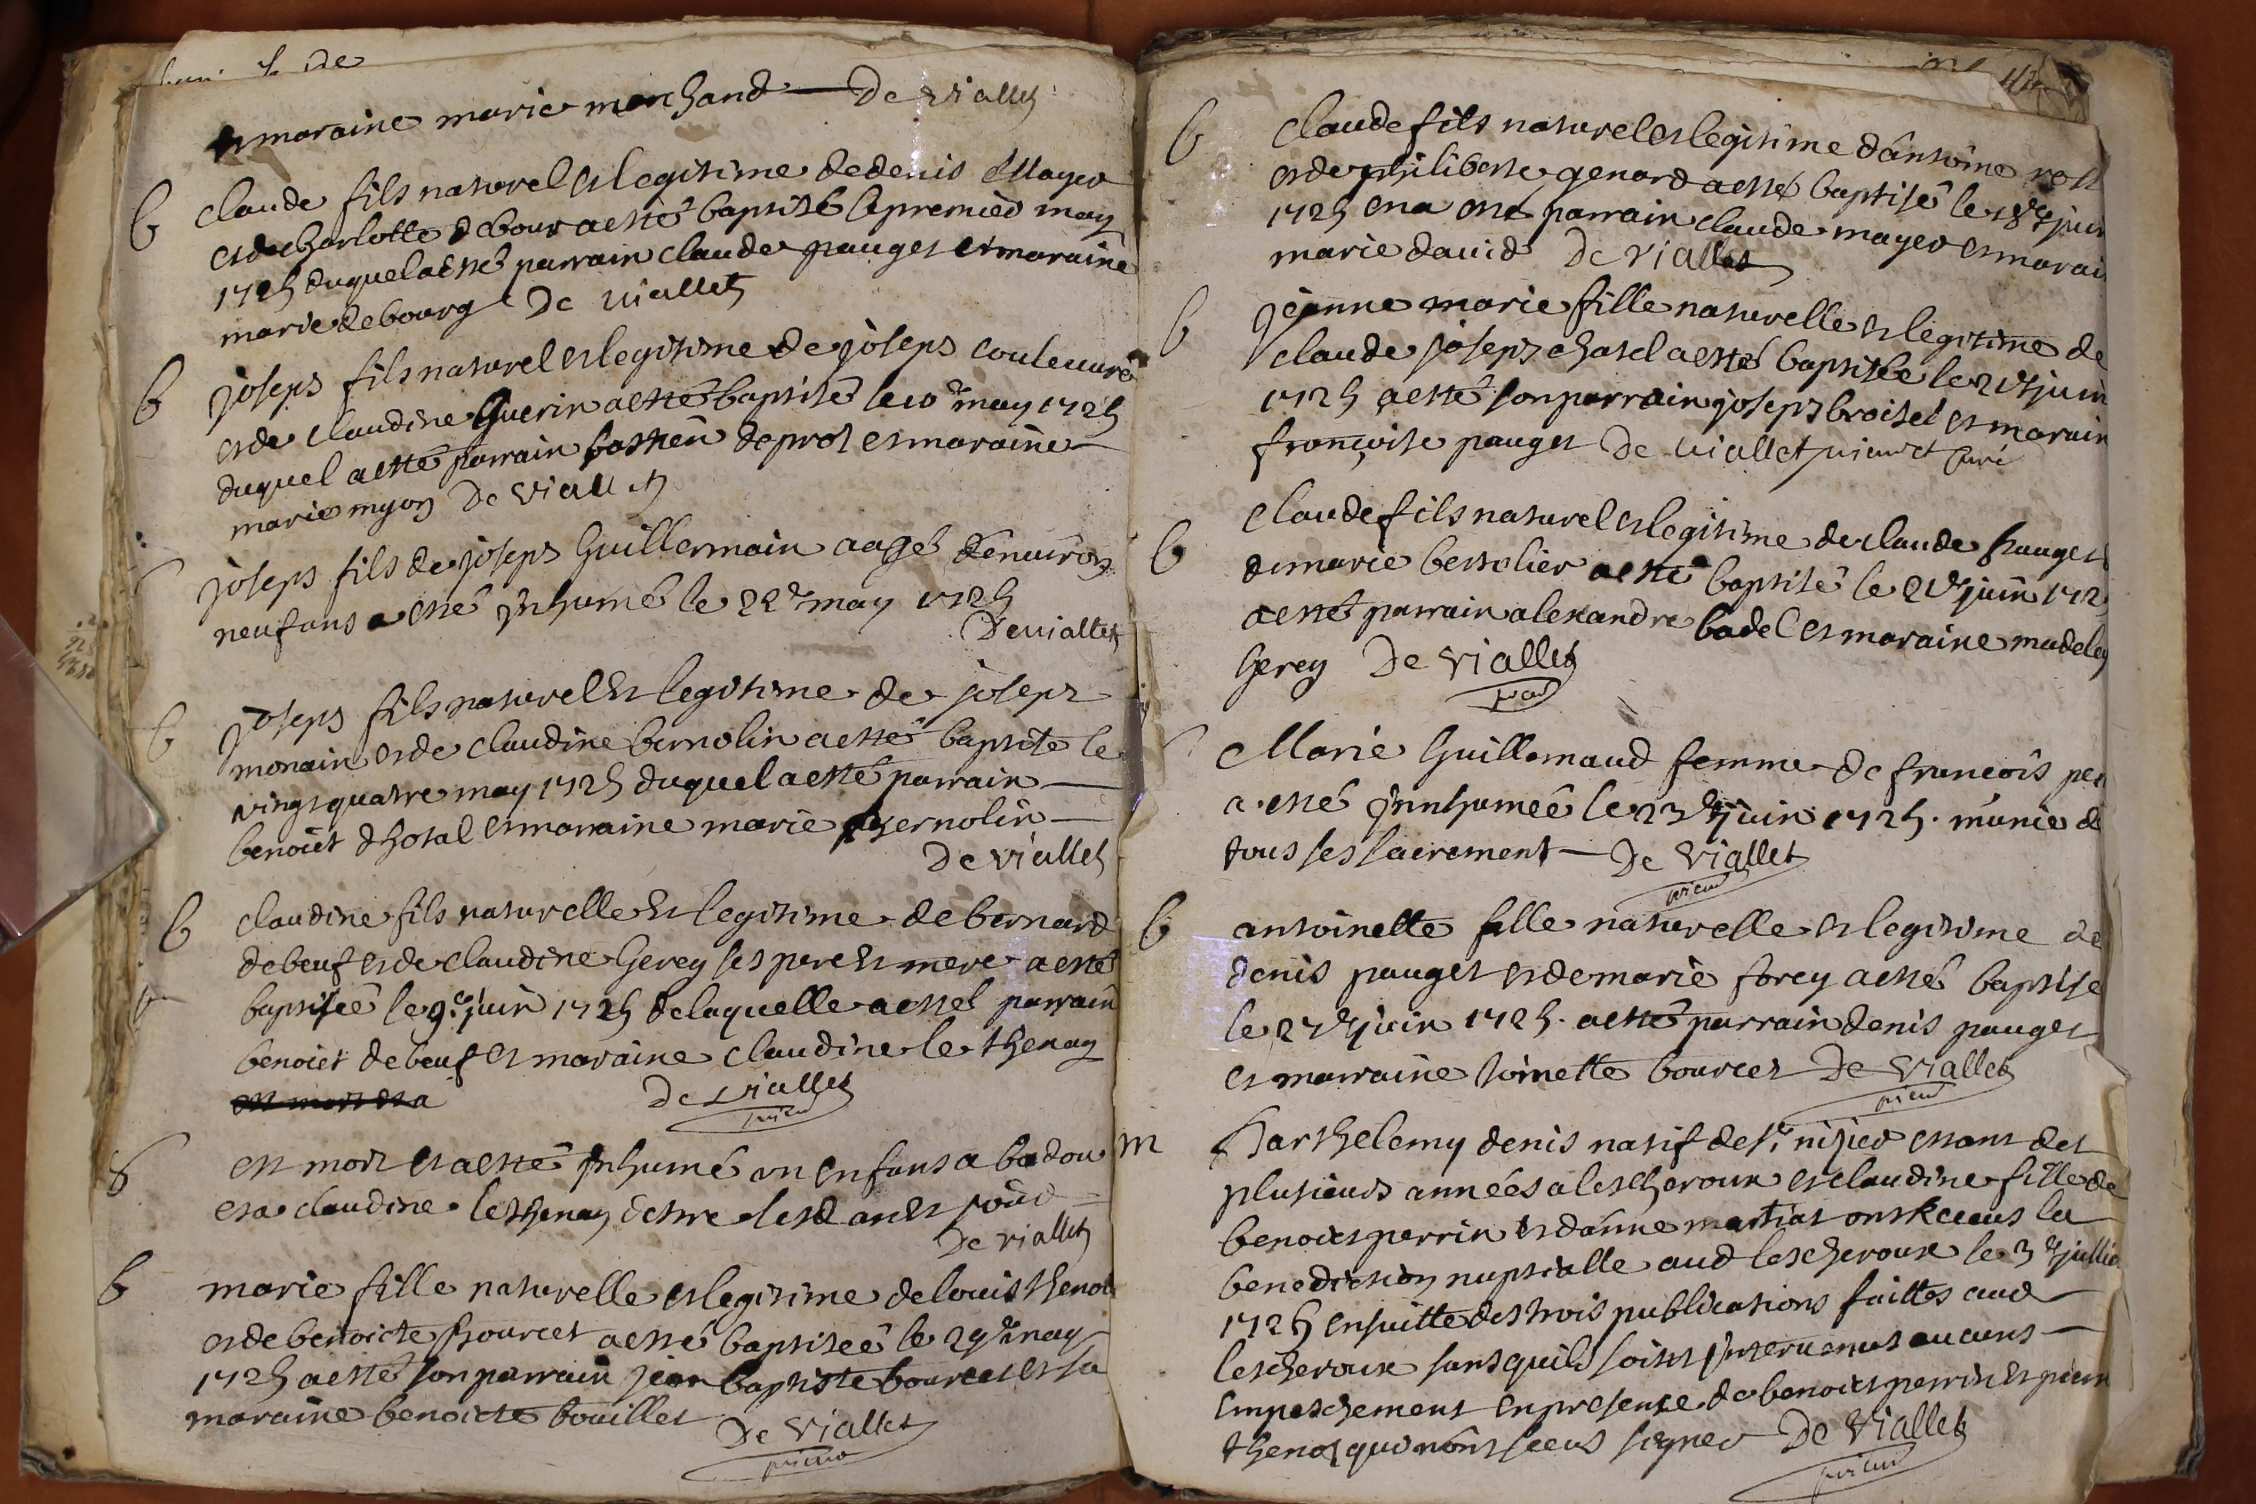 et moraine marie marchand De Viallet
b claude fils naturel et legitime de denis Mayer
et de charlotte debour a esté baptisé le premier may
1725 duquel a esté parrain claude pauget et moraine
marie debourg De Viallet
b joseph fils naturel et legitime de joseph couleuure
et de claudine Guerin a esté baptisé le 10e may 1725
duquel a esté parrain bastien deprol et moraine
marie myon De Viallet
joseph fils de joseph Guillermain aagé d'enuiron
neuf ans a esté Inhumé le 22e may 1725
De Viallet
b joseph fils naturel et legitime de joseph
monain et de claudine bernolin a esté baptisé le
vingt quatre may 1725 duquel a esté parrain
benoict dhotal et marraine marie bernolin
De Viallet
b claudine fils naturelle et legitime de bernard
debeuf et de claudine Gerey ses pere et mere a esté
baptiseé le 9e juin 1725 de laquelle a esté parrain
benoict debeuf et moraine claudine le thenoy
De Viallet
prieur
S est mort et a esté Inhumé un enfant a badou
et a claudine lethenoy
De Viallet
b marie fille naturelle et legitime de louis thenot
et de benoicte bourcet a esté baptiseé le 29e may
1725 a esté son parrain jean baptiste bourcet et sa
moraine benoicte bouillet
De Viallet
prieur
44
b Claude fils naturel et legitime d'antoine
et de philiberte genard a esté baptisé le 18e juin
1725 en a esté parrain claude mayer et morai
marie david De Viallet
b jeanne marie fille naturelle et legitime de
claude joseph chatel a esté baptisée le 21e juin
1725 a esté son parrain joseph broiset et morain
françoise pauget De Viallet prieur et curé
b Claude fils naturel et legitime de claude pauget
de marie bertelier a esté baptisé le 21e juin 172
a esté parrain alexandre badel et moraine madeley
Gerey De Viallet
prieur
Marie Guillemaud femme de francois per
a esté Innhumeé le 23e juin 1725. munie de
tous ses sacrement De Viallet
prieur
b antoinette fille naturelle et legitime de
denis pauget et de marie forey a esté baptise
le 27e juin 1725. a esté parrain denis pauget
et marraine toinette bourcet De Viallet
prieur
m Barthelemy denis natif de st nizier estant det
plusieurs années a lescheroux et claudine fille de
benoict perrin et d'anne martiat ont Receus la
benediction nuptialle aud lescheroux le 3e jullie
1725 ensuitte des trois publications faittes aud
lescheroux sans quils soient Interuenus aucuns
empeschement en presence de benoict perrin et pierre
thenot qui n'ont sceus signer De Viallet
prieur